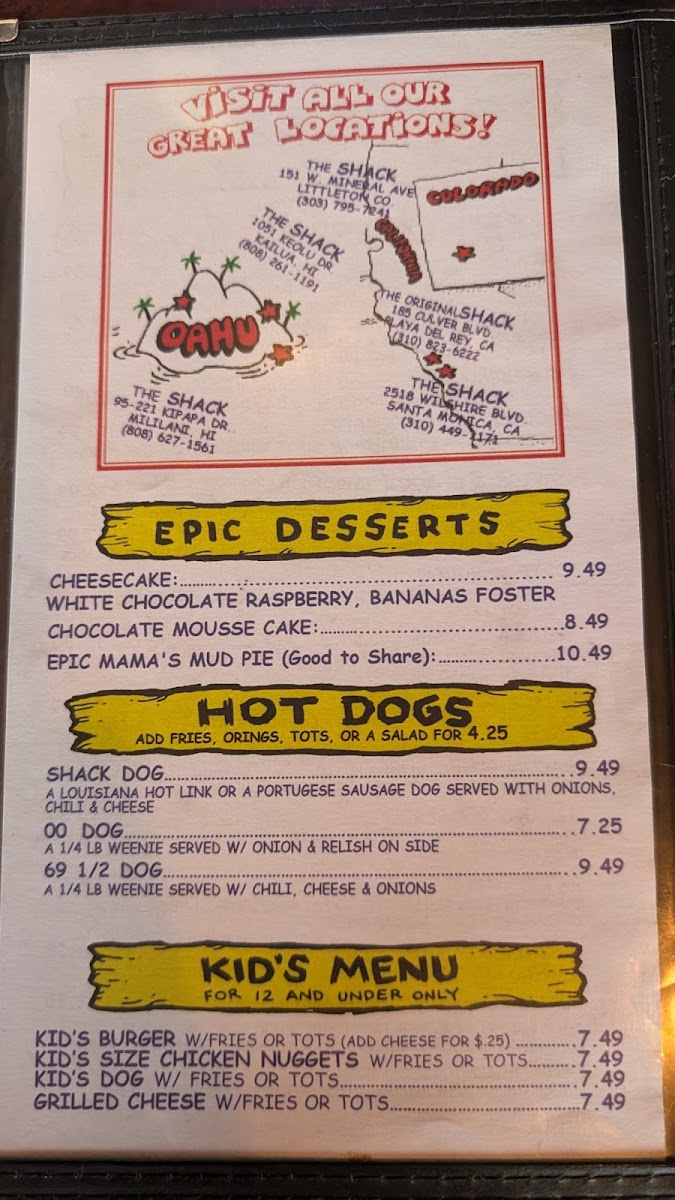 VISIT ALL OUR
GREAT LOCATIONS!
THE SHACK
151 W. MINERAL AVE
LITTLETON CO.
(303) 795-7241
COLORADO
THE SHACK
1051 KEOLU DR.
KAILUA, HI
(808) 261-1191
CALIFORNIA
OAHU
THE ORIGINAL SHACK
185 CULVER BLVD.
PLAYA DEL REY, CA
(310) 823-6222
THE SHACK
2518 WILSHIRE BLVD.
SANTA MONICA, CA
(310) 449-1171
THE SHACK
95-221 KIPAPA DR.
MILILANI, HI
(808) 627-1561
EPIC DESSERTS
CHEESECAKE:........................................................ 9.49
WHITE CHOCOLATE RASPBERRY, BANANAS FOSTER
CHOCOLATE MOUSSE CAKE:.......................................8.49
EPIC MAMA'S MUD PIE (Good to Share):....................10.49
HOT DOGS
ADD FRIES, ORINGS, TOTS, OR A SALAD FOR 4.25
SHACK DOG.................................................................9.49
A LOUISIANA HOT LINK OR A PORTUGESE SAUSAGE DOG SERVED WITH ONIONS,
CHILI & CHEESE
OO DOG.......................................................................7.25
A 1/4 LB WEENIE SERVED W/ ONION & RELISH ON SIDE
69 1/2 DOG..................................................................9.49
A 1/4 LB WEENIE SERVED W/ CHILI, CHEESE & ONIONS
KID'S MENU
FOR 12 AND UNDER ONLY
KID'S BURGER W/FRIES OR TOTS (ADD CHEESE FOR $.25) ............7.49
KID'S SIZE CHICKEN NUGGETS W/FRIES OR TOTS.........7.49
KID'S DOG W/ FRIES OR TOTS........................................7.49
GRILLED CHEESE W/FRIES OR TOTS................................7.49